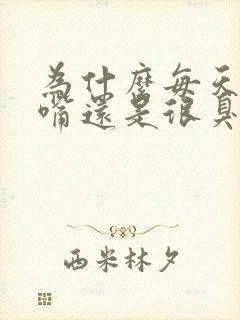 為什麼每天
嘴還是很臭
西米林夕